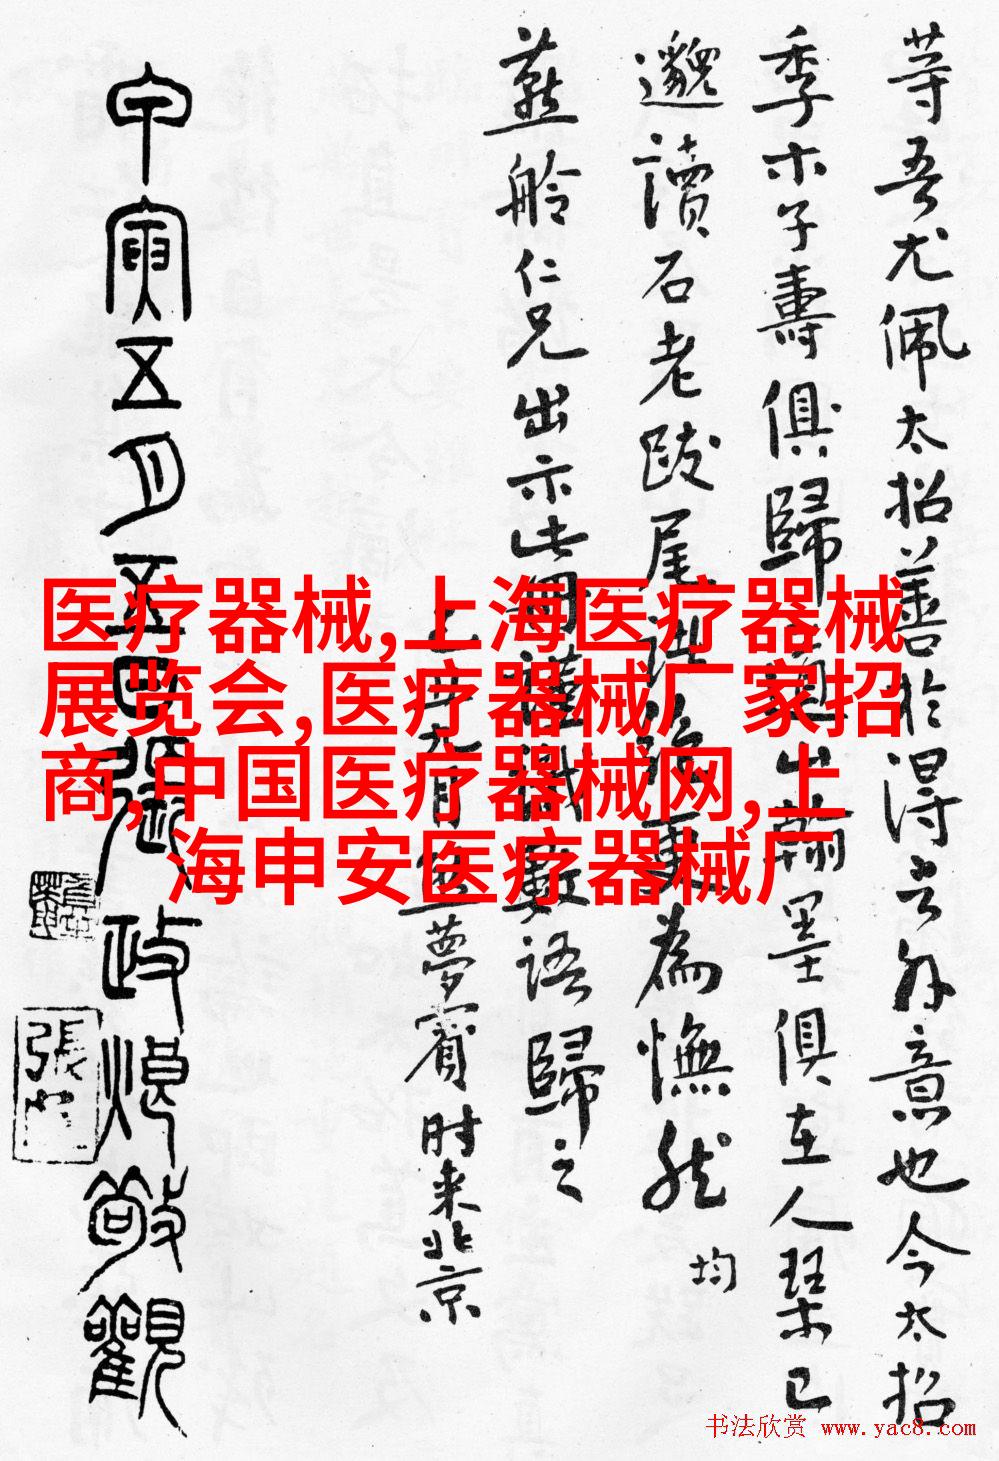 等吾尤佩太招善於得言外意也今太招
季木子壽俱歸道山翰墨俱在人琴已
邈讀石老跋尾為憮然 均
燕舲仁兄出示此冊謹識數語歸之
夢賓時來北京
甲寅五月五日張政烺敬觀
張
医疗器械,上海医疗器械
展览会,医疗器械厂家招
商,中国医疗器械网,上
海申安医疗器械厂
书法欣赏 www.yac8.com